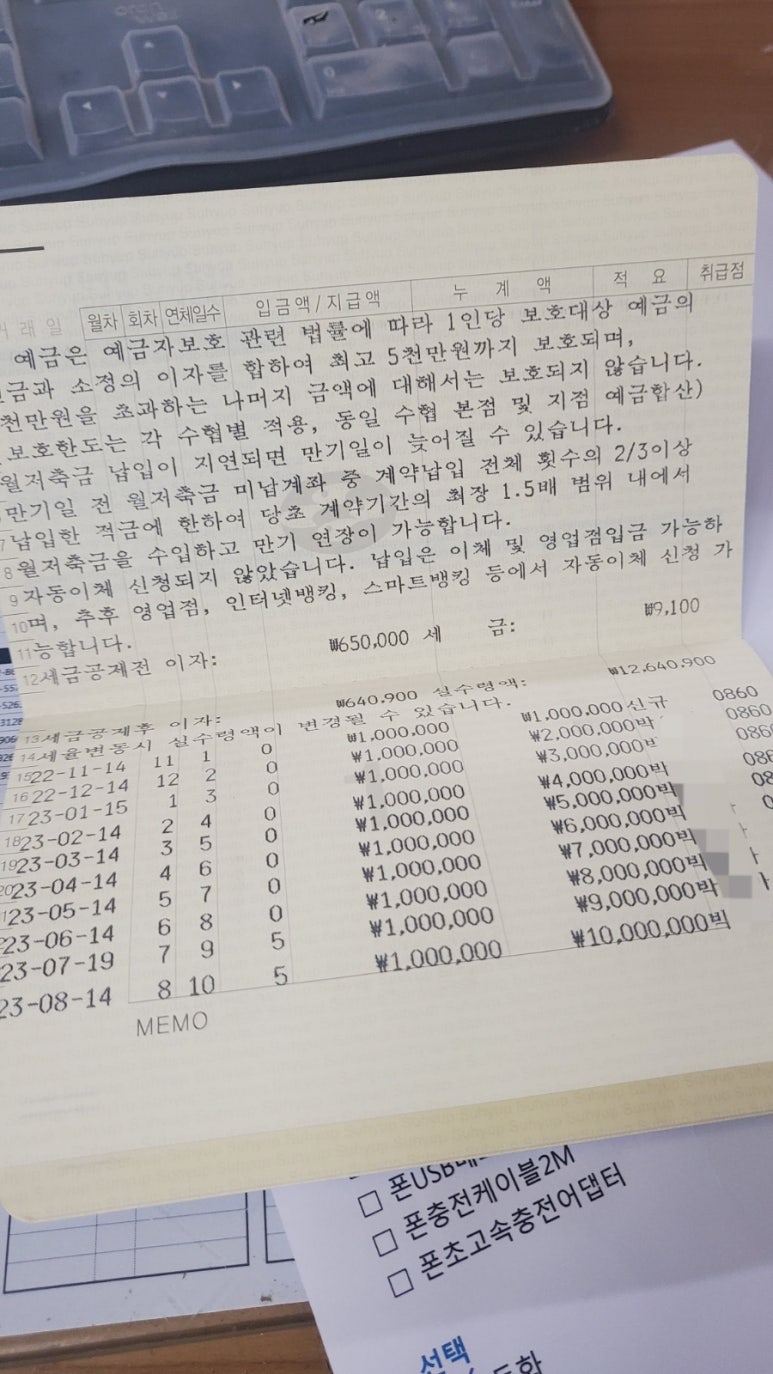 거래일 월차 회차 연체일수 입금액/지급액 누계액 적요 취급점
예금은 예금자보호 관련 법률에 따라 1인당 보호대상 예금의
금과 소정의 이자를 합하여 최고 5천만원까지 보호되며,
천만원을 초과하는 나머지 금액에 대해서는 보호되지 않습니다.
보호한도는 각 수협별 적용, 동일 수협 본점 및 지점 예금합산)
월저축금 납입이 지연되면 만기일이 늦어질 수 있습니다.
만기일 전 월저축금 미납계좌 중 계약납입 전체 횟수의 2/3이상
7납입한 적금에 한하여 당초 계약기간의 최장 1.5배 범위 내에서
8월저축금을 수입하고 만기 연장이 가능합니다.
9자동이체 신청되지 않았습니다. 납입은 이체 및 영업점입금 가능하
10며, 추후 영업점, 인터넷뱅킹, 스마트뱅킹 등에서 자동이체 신청 가
11능합니다.
12세금공제전 이자: ₩650,000 세 금: ₩9,100
13세금공제후 이자: ₩640,900 실수령액: ₩12,640,900
14세율변동시 실수령액이 변경될 수 있습니다.
1522-11-14 11 1 0 ₩1,000,000 ₩1,000,000신규 0860
1622-12-14 12 2 0 ₩1,000,000 ₩2,000,000박 0860
1723-01-15 1 3 0 ₩1,000,000 ₩3,000,000 086
1823-02-14 2 4 0 ₩1,000,000 ₩4,000,000박 086
1923-03-14 3 5 0 ₩1,000,000 ₩5,000,000박 08
2023-04-14 4 6 0 ₩1,000,000 ₩6,000,000박 0
23-05-14 5 7 0 ₩1,000,000 ₩7,000,000박
23-06-14 6 8 0 ₩1,000,000 ₩8,000,000박
23-07-19 7 9 5 ₩1,000,000 ₩9,000,000박
23-08-14 8 10 5 ₩1,000,000 ₩10,000,000박
MEMO
□ 폰USB
□ 폰충전케이블2M
□ 폰초고속충전어댑터
선택